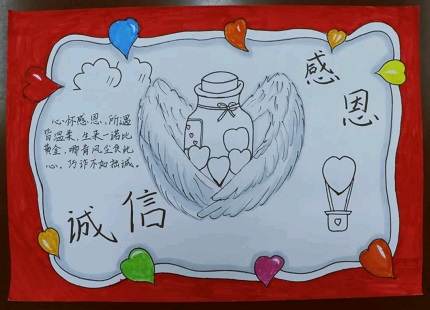 感
恩
心怀感恩,所遇
皆温柔,生来一诺比
黄金,哪肯风尘负此
心。巧诈不如拙诚。
诚信